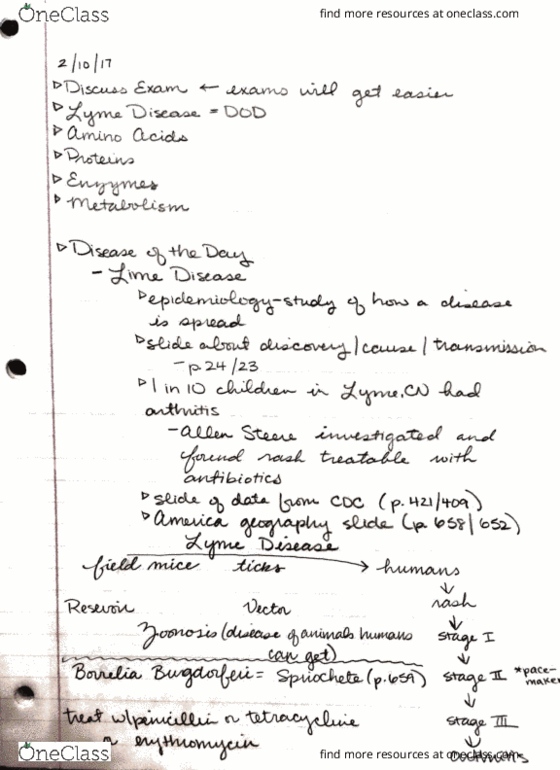 OneClass
find more resources at oneclass.com
2/10/17
▹Discuss Exam ← exams will get easier
▹Lyme Disease = DOD
▹Amino Acids
▹Proteins
▹Enzymes
▹Metabolism
▹Disease of the Day
- Lime Disease
▹epidemiology-study of how a disease
is spread
▹slide about discovery/cause/transmission
- p.24/23
▹1 in 10 children in Lyme, CN had
arthritis
- Allen Steere investigated and
found rash treatable with
antibiotics
▹slide of data from CDC (p.421/409)
▹America geography slide (p. 658/652)
Lyme Disease
field mice ticks → humans
↓
Reservoir Vector rash
↓
Zoonosis (disease of animals humans stage I
can get) ↓
Borrelia Bugdorferi = Spriochete (p.659) stage II *pace-
maker
↓
treat w/penicillin or tetracycline stage III
or erythromycin ↓
OneClass
find more resources at oneclass.com